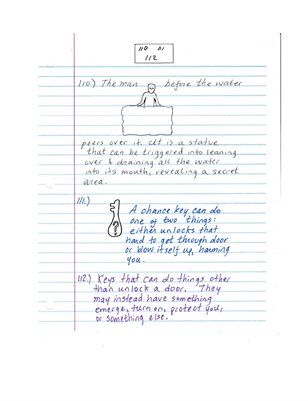 110 111
112
110.) The man before the water
peers over it. It is a statue
that can be triggered into leaning
over & draining all the water
into its mouth, revealing a secret
area.
111.)
A chance key can do
one of two things:
either unlocks that
hard to get through door
or blow itself up, harming
you.
112.) Keys that can do things other
than unlock a door. They
may instead have something
emerge, turn on, protect you,
or something else.